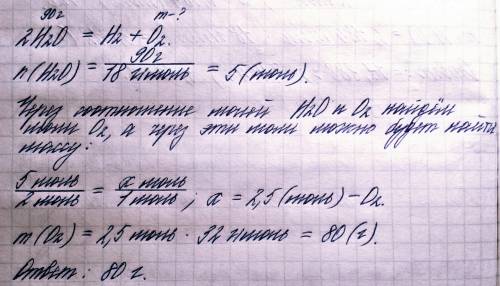 90г m-?
2H2O = H2 + O2.
n(H2O) = 90г / 18 г/моль = 5 (моль).
Через соотношение молей H2O и O2 найдём
моли O2, а через эти моли можно будет найти
массу:
5 моль / 2 моль = x моль / 1 моль ; x = 2,5 (моль) - O2.
m (O2) = 2,5 моль · 32 г/моль = 80 (г).
Ответ: 80 г.